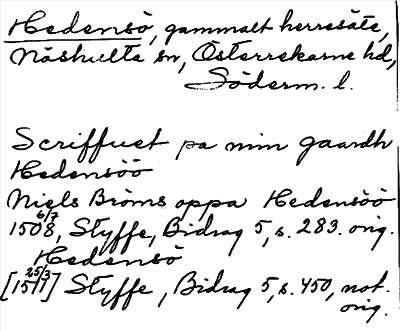 Hedensö, gammalt herresäte,
Näshulta sn, Österrekarne hd,
Söderm. l.
Scriffuet pa min gaardh
Hedensöö
Niels Bröms oppa Hedensöö
1508 6/7, Styffe, Bidrag 5, s. 283. orig.
Hedensö
[1511 25/3] Styffe, Bidrag 5, s. 450, not.
orig.